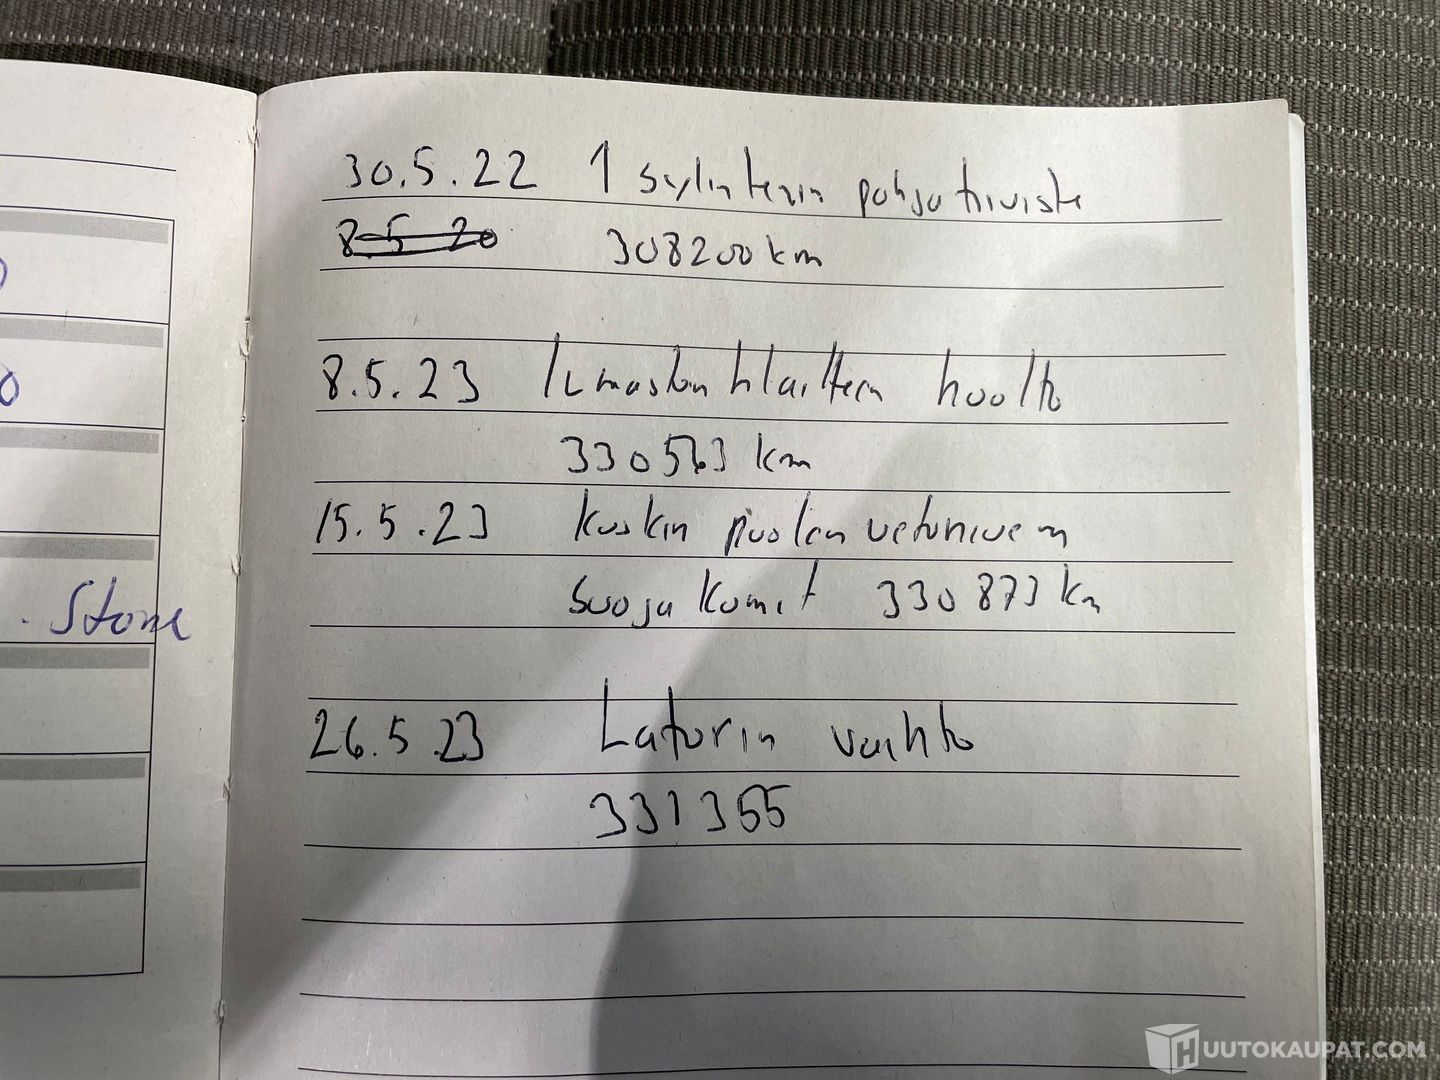 30.5.22 1 sylinterin pohja tiiviste
8.5 20
308200 km
8.5.23 Ilmastointilaitteen huolto
km
15.5.23 kuskin puolen vetonivelen
suoja kumit 330873 km
26.5.23 Laturin vaihto
331355
. Stone
HUUTOKAUPAT.COM